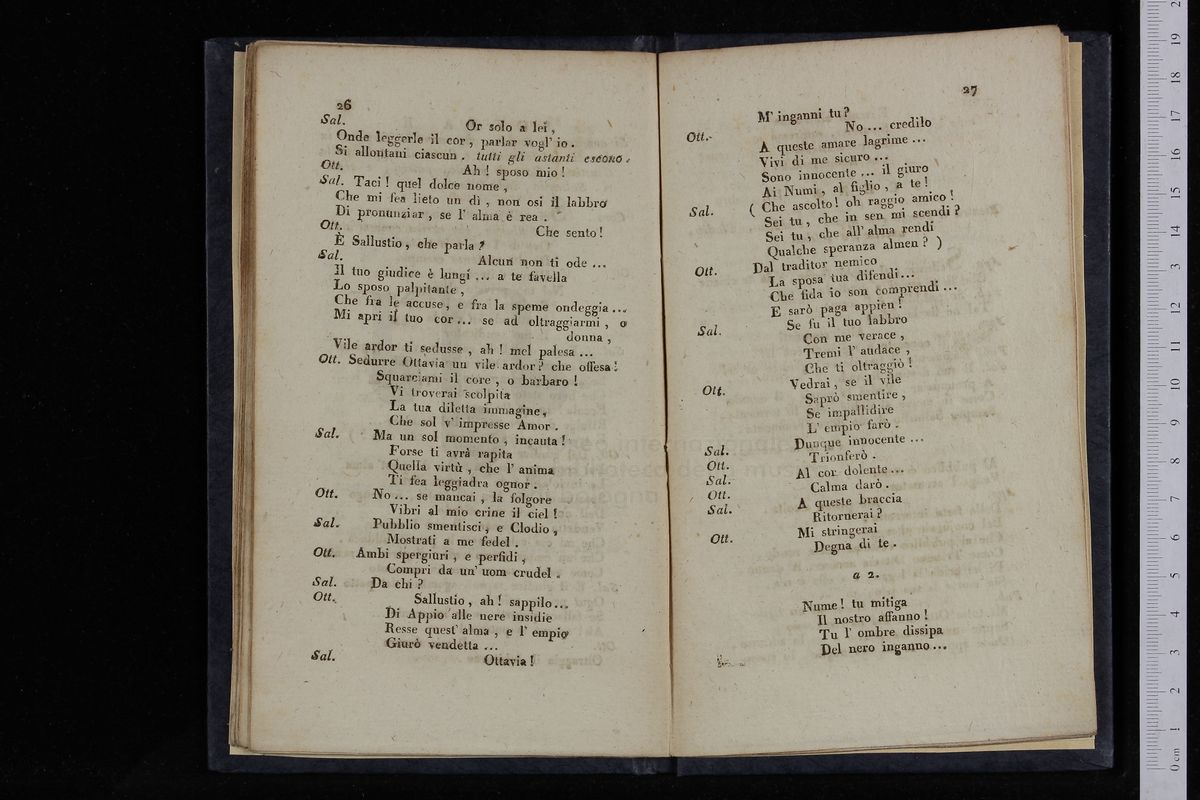 26
Sal. Or solo a lei,
Onde leggerle il cor, parlar vogl' io.
Si allontani ciascun. tutti gli astanti escono.
Ott. Ah! sposo mio!
Sal. Taci! quel dolce nome,
Che mi fea lieto un dì, non osi il labbro
Di pronunziar, se l' alma è rea.
Ott. Che sento!
È Sallustio, che parla?
Sal. Alcun non ti ode...
Il tuo giudice è lungi... a te favella
Lo sposo palpitante,
Che fra le accuse, e fra la speme ondeggia...
Mi apri il tuo cor... se ad oltraggiarmi, o
donna,
Vile ardor ti sedusse, ah! mel palesa...
Ott. Sedurre Ottavia un vile ardor? che offesa!
Squarciami il core, o barbaro!
Vi troverai scolpita
La tua diletta immagine,
Che sol v' impresse Amor.
Sal. Ma un sol momento, incauta!
Forse ti avrà rapita
Quella virtù, che l' anima
Ti fea leggiadra ognor.
Ott. No... se mancai, la folgore
Vibri al mio crine il ciel!
Sal. Pubblio smentisci, e Clodio,
Mostrati a me fedel.
Ott. Ambi spergiuri, e perfidi,
Compri da un' uom crudel.
Sal. Da chi?
Ott. Sallustio, ah! sappilo...
Di Appio alle nere insidie
Resse quest' alma, e l' empio
Giurò vendetta...
Sal. Ottavia!
27
M' inganni tu?
Ott. No... credilo
A queste amare lagrime...
Vivi di me sicuro...
Sono innocente... il giuro
Ai Numi, al figlio, a te!
Sal. ( Che ascolto! oh raggio amico!
Sei tu, che in sen mi scendi?
Sei tu, che all' alma rendi
Qualche speranza almen? )
Ott. Dal traditor nemico
La sposa tua difendi...
Che fida io son comprendi...
E sarò paga appien!
Sal. Se fu il tuo labbro
Con me verace,
Tremi l' audace,
Che ti oltraggiò!
Ott. Vedrai, se il vile
Saprò smentire,
Se impallidire
L' empio farò.
Sal. Dunque innocente...
Ott. Trionferò.
Sal. Al cor dolente...
Ott. Calma darò.
Sal. A queste braccia
Ritornerai?
Ott. Mi stringerai
Degna di te.
a 2.
Nume! tu mitiga
Il nostro affanno!
Tu l' ombre dissipa
Del nero inganno...